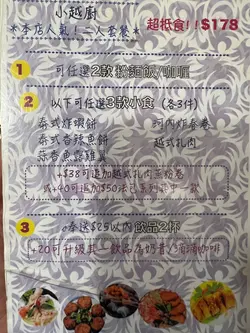 小越廚
*本店人氣!二人套餐*
超抵食!!$178
1 可任選2款粉麵飯/咖喱
2 以下可任選3款小食 (各3件)
泰式炸蝦餅 河內炸春卷
泰式香辣魚餅 越式扎肉
蒜香魚露雞翼
+$38可追加越式扎肉蒸粉卷
或+40可追加$50法包系列其中一款
3 送$25以內飲品2杯
+20可升級其一飲品為奶昔/滴滴咖啡